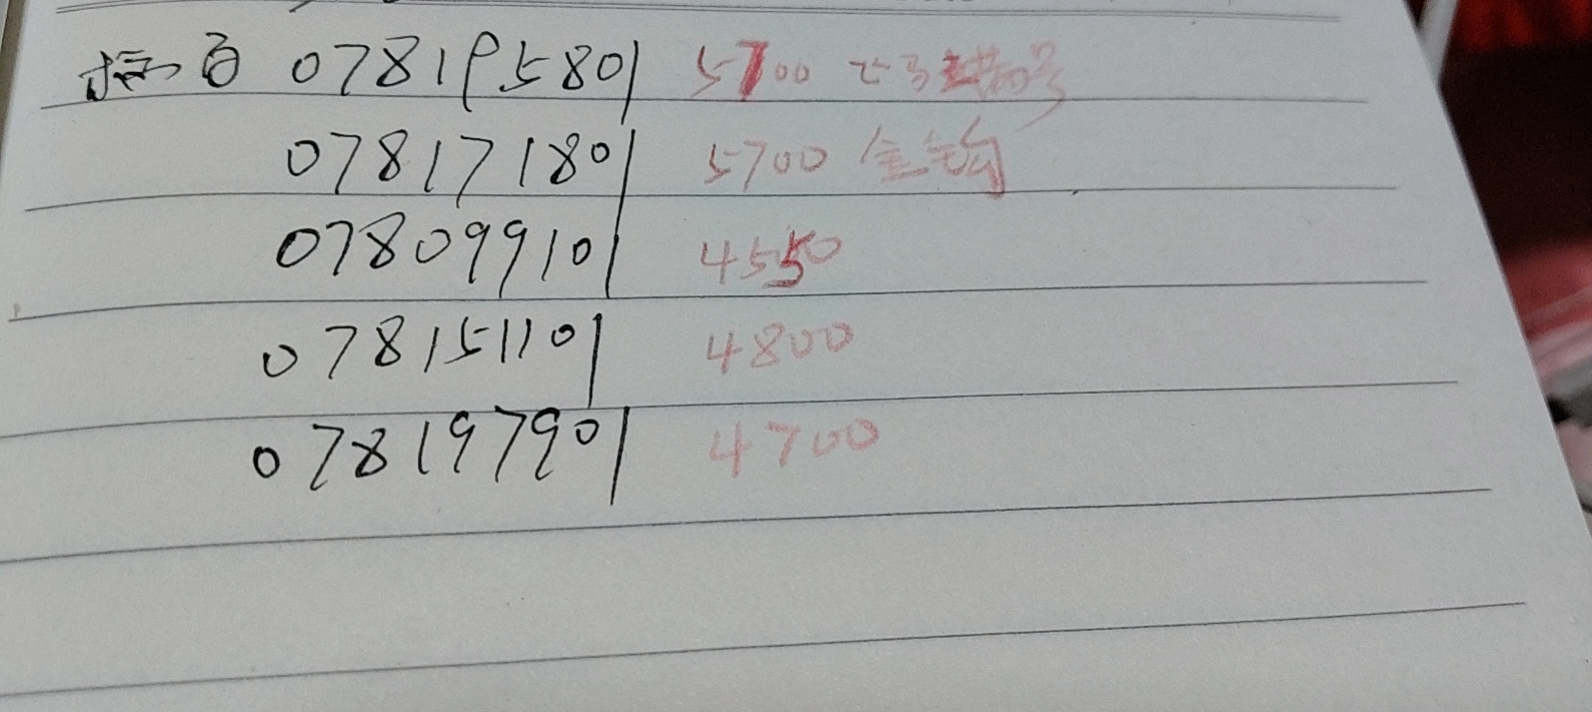 标百 078195801 5700
078171801 5700 全钩
078099101 4550
078151101 4800
078197901 4700